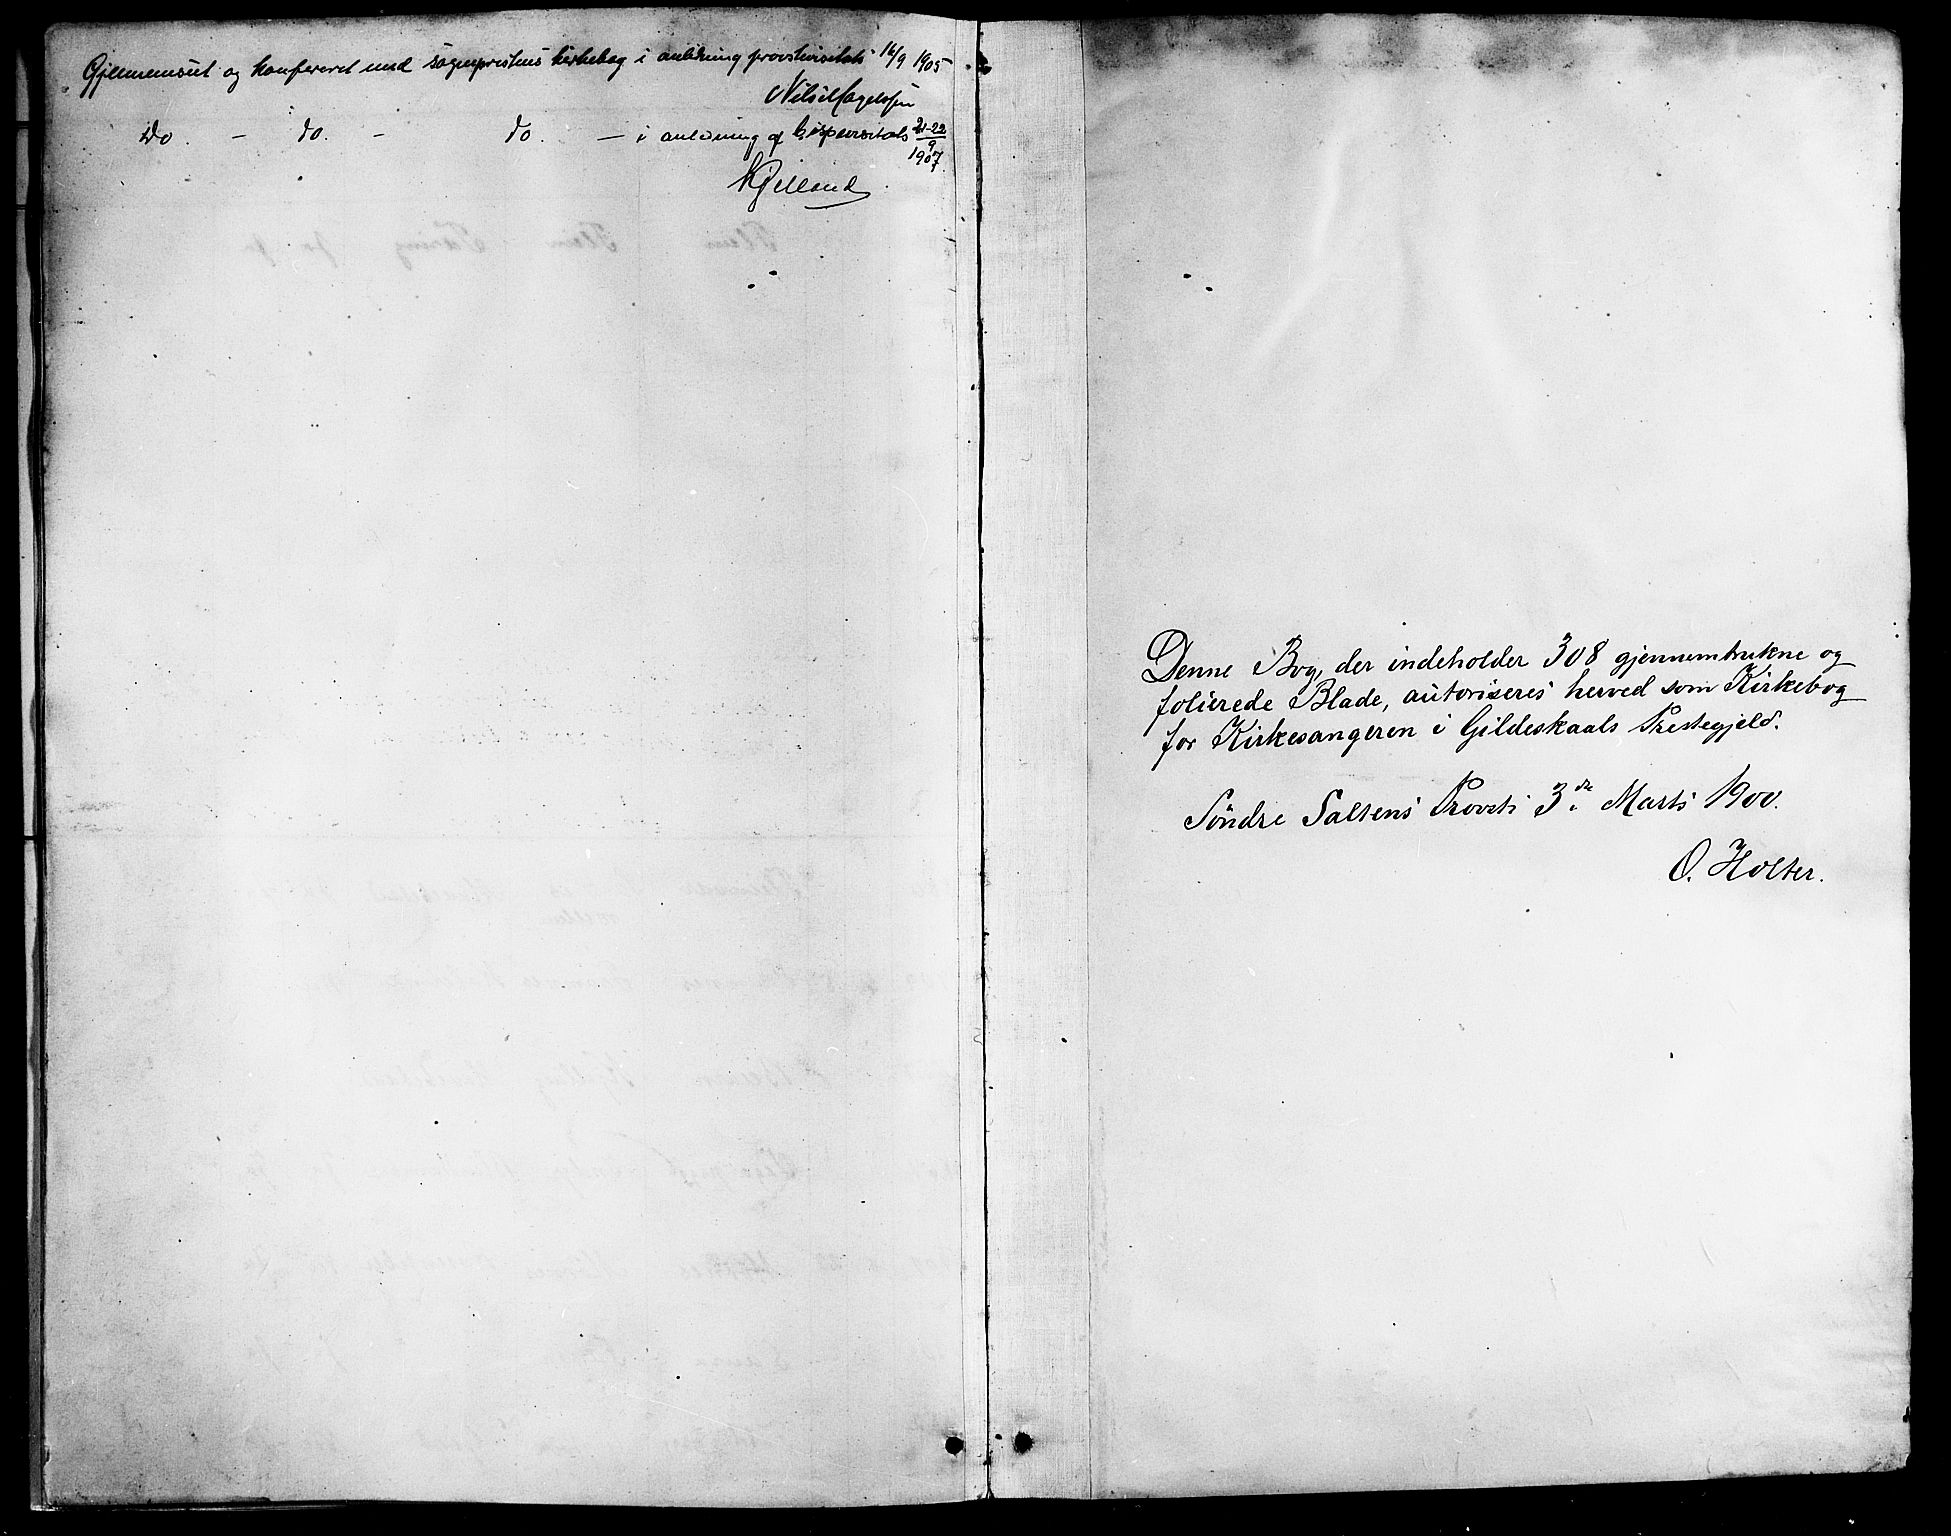 Gjennemseet og konfereret med sogneprestens kirkebog i anledning provstevisitats 16/9 1905
Do. – do. – do. – i anledning af bispevisitats 21-22/9 1907.
Denne Bog, der indeholder 308 gjennemtrukne og
folierede Blade, autoriseres herved som Kirkebog
for Kirkesangeren i Gildeskaals Prestegjeld.
Søndre Saltens Provsti 3de Marts 1900.
O. Holter.